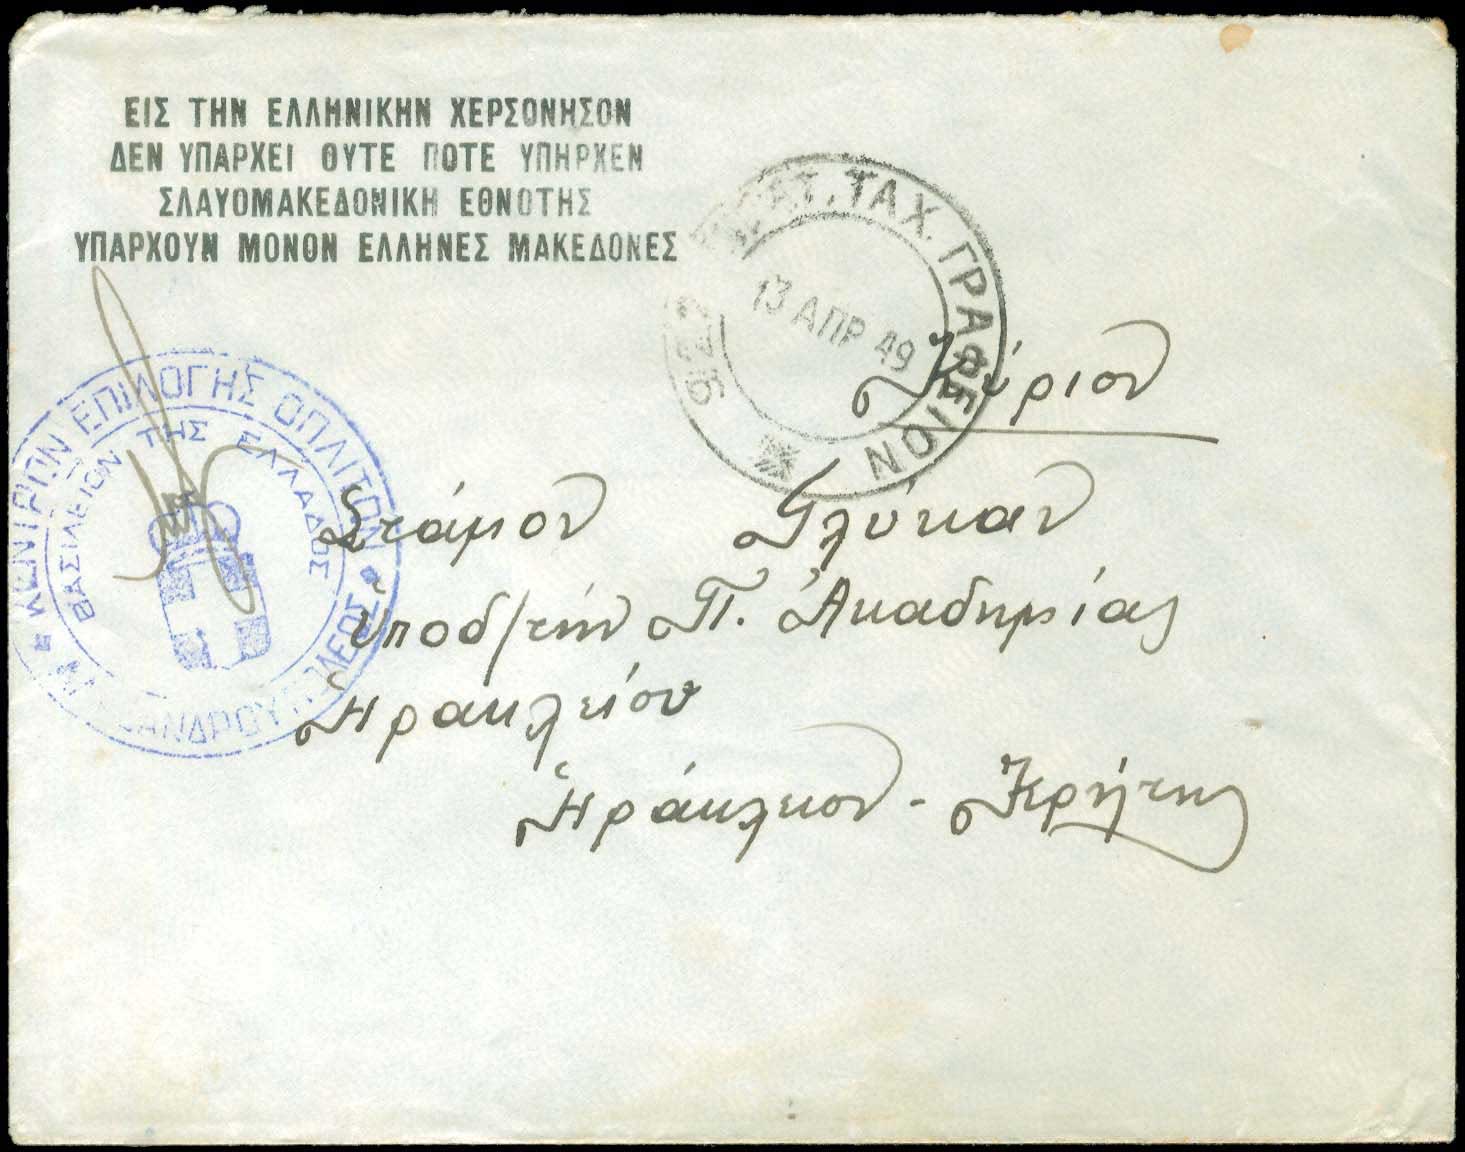 ΕΙΣ ΤΗΝ ΕΛΛΗΝΙΚΗΝ ΧΕΡΣΟΝΗΣΟΝ
ΔΕΝ ΥΠΑΡΧΕΙ ΟΥΤΕ ΠΟΤΕ ΥΠΗΡΧΕΝ
ΣΛΑΥΟΜΑΚΕΔΟΝΙΚΗ ΕΘΝΟΤΗΣ
ΥΠΑΡΧΟΥΝ ΜΟΝΟΝ ΕΛΛΗΝΕΣ ΜΑΚΕΔΟΝΕΣ
922 ΤΑΧ. ΓΡΑΦΕΙΟΝ
13 ΑΠΡ 49
ΚΕΝΤΡΙΟΝ ΕΠΙΛΟΓΗΣ ΟΠΛΙΤΩΝ
ΒΑΣΙΛΕΙΟΝ ΤΗΣ ΕΛΛΑΔΟΣ
Κύριον
Στάμον Γλύκαν
Ὑποδ/τήν Π. Ἀκαδημίας
Ἡρακλείου
Ἡράκλειον - Κρήτης